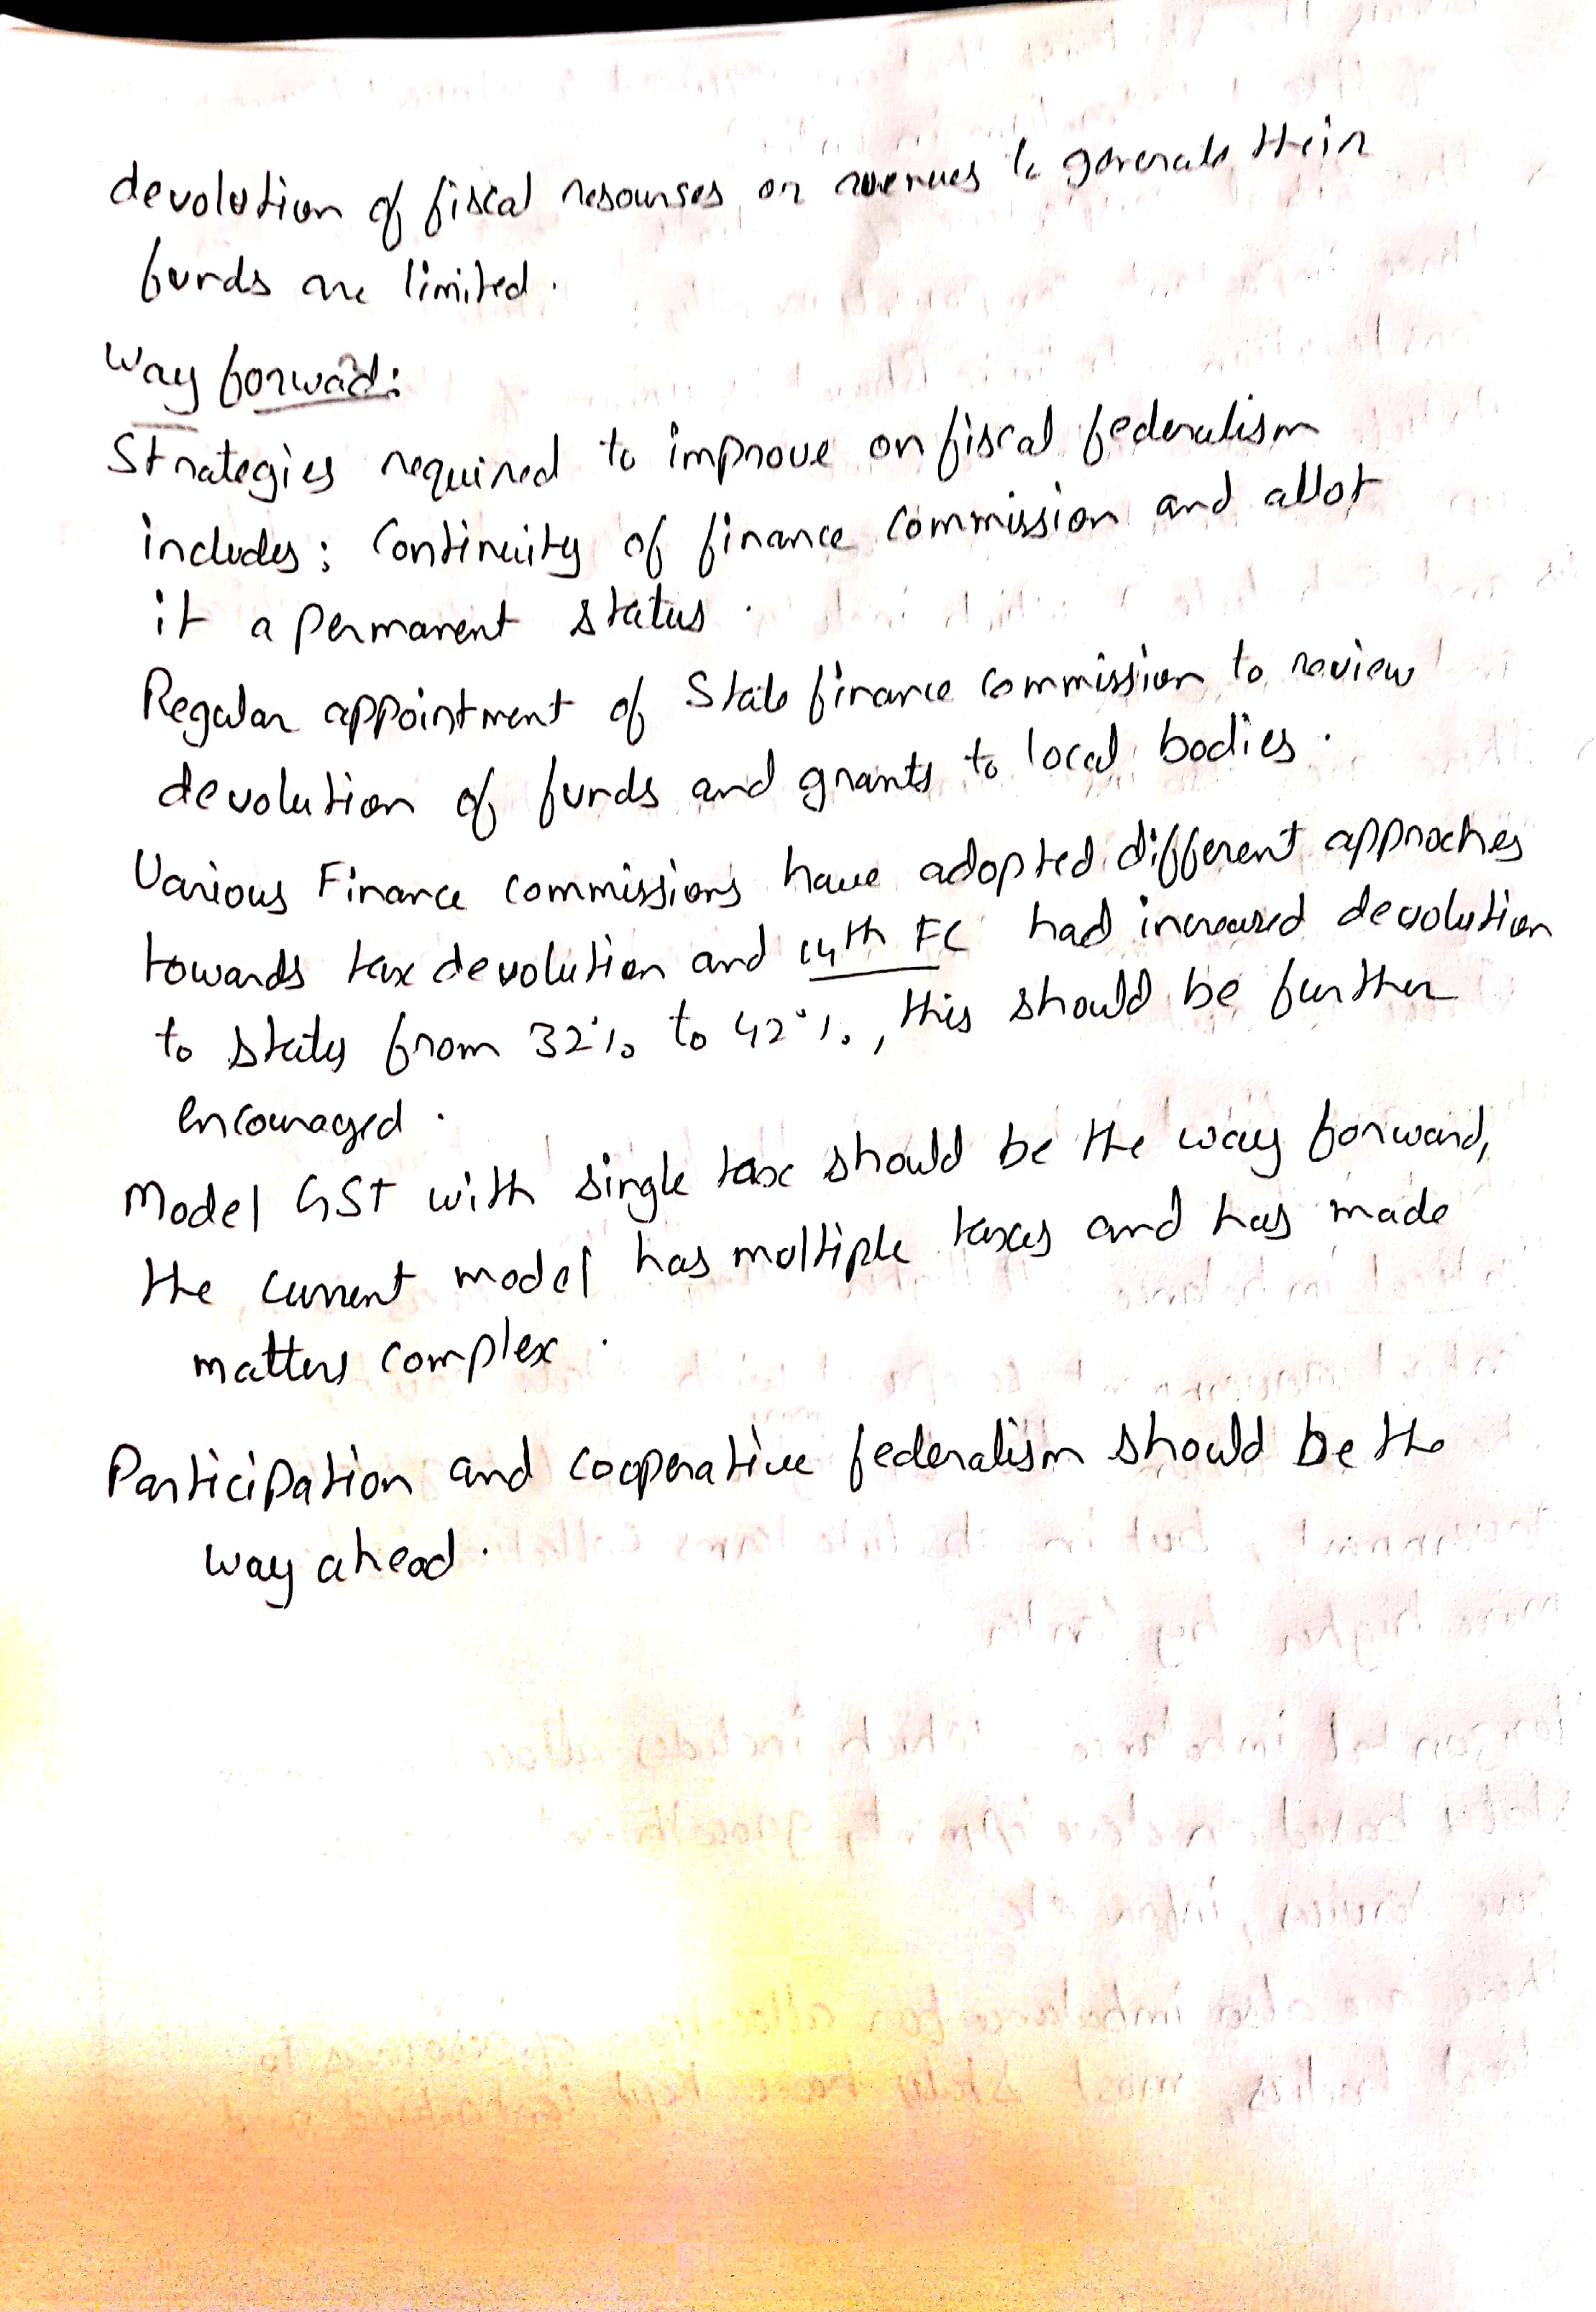 devolution of fiscal resourses or avenues to generate their
funds are limited.
Way forward:
Strategies required to improve on fiscal federalism
includes: Continuity of finance commission and allot
it a permanent status.
Regular appointment of State finance commission to review
devolution of funds and grants to local bodies.
Various Finance commissions have adopted different approches
towards tax devolution and 14th FC had increased devolution
to states from 32% to 42%, this should be further
encouraged.
Model GST with single tax should be the way forward,
the current model has moltiple taxes and has made
matters complex.
Participation and cooperative federalism should be the
way ahead.